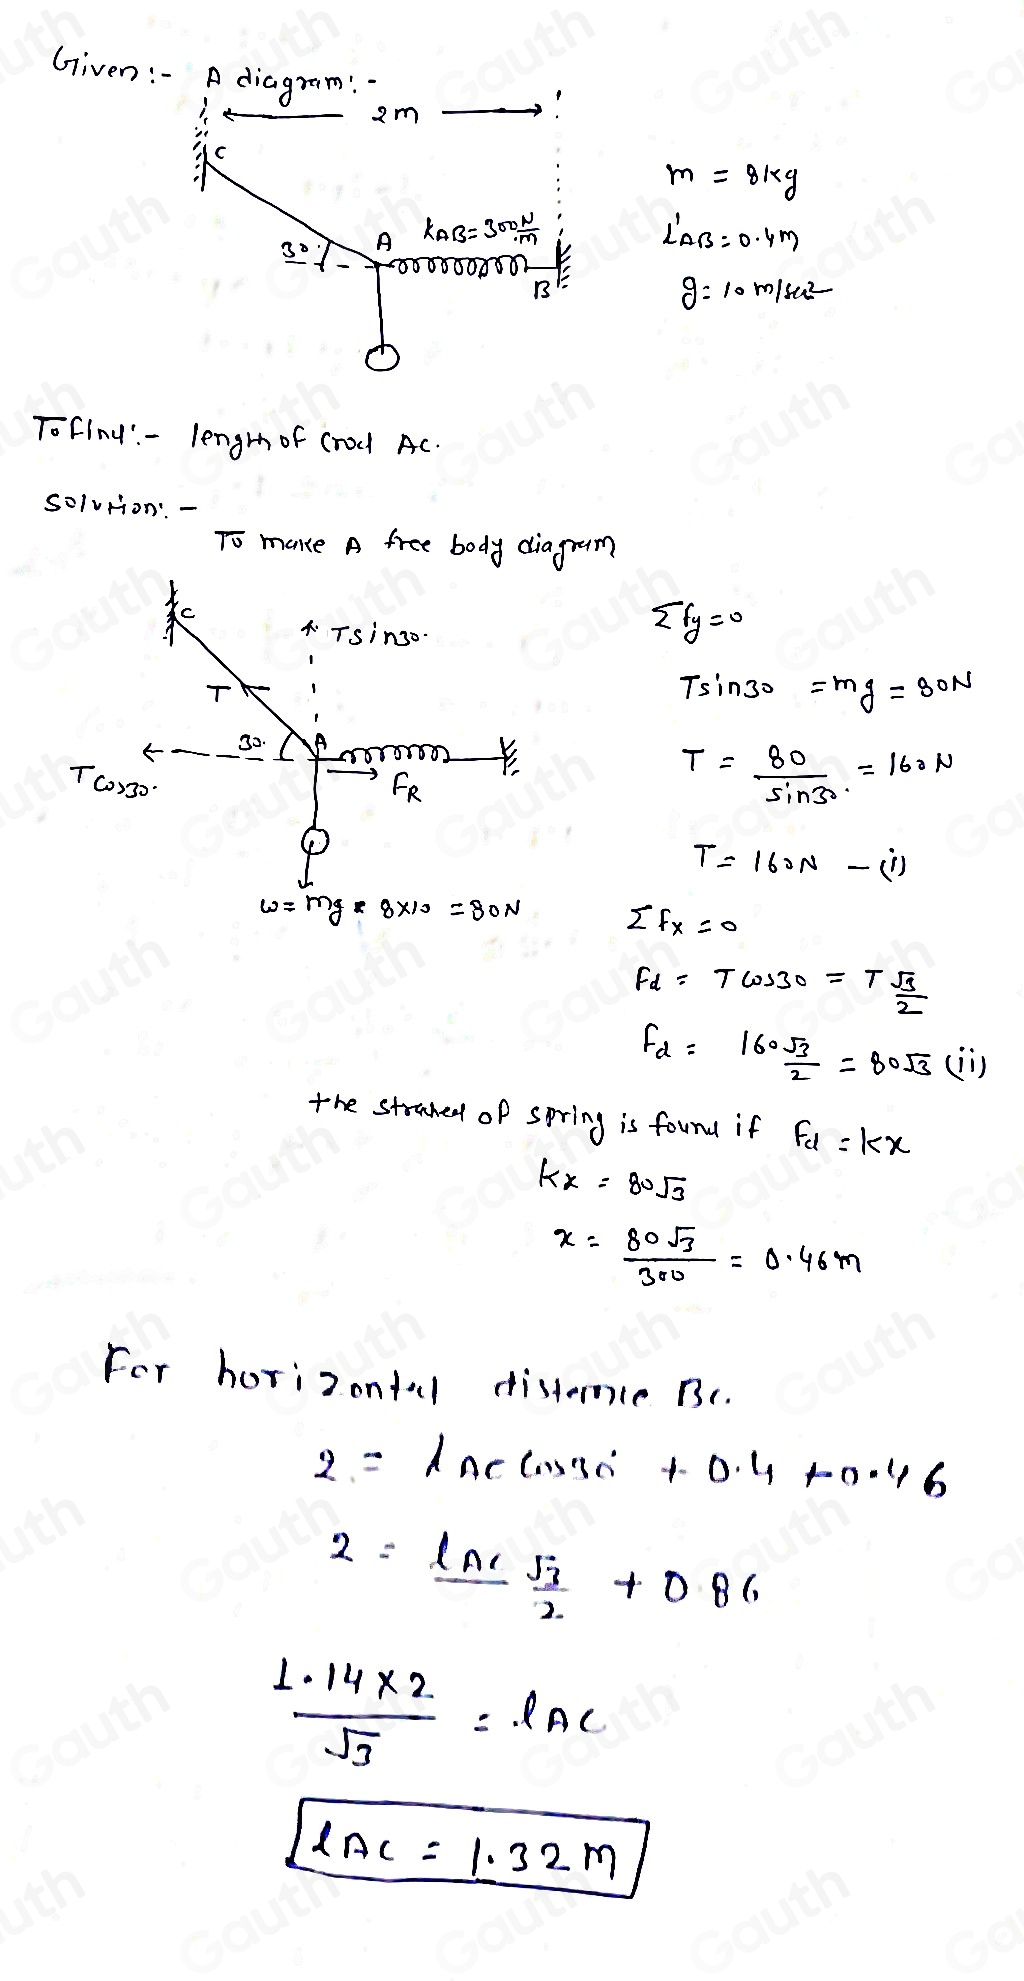 Given:- A diagram:-
2m
C
30°
A
KAB=300 N/m
B
m = 8kg
l'AB=0.4m
g=10 m/sec2
To find:- length of Crod AC.
Solution:-
To make A free body diagram
C
Tsin30°
T
30°
A
Tcos30°
FR
w= mg = 8×10 =80N
Σfy=0
Tsin30 =mg = 80N
T = 80/sin30° = 160N
T= 160N -(i)
Σfx =0
Fd = Tcos30 = T √3/2
Fd = 160 √3/2 = 80√3 (ii)
the strached of spring is found if Fd = kx
kx = 80√3
x = 80√3/300 = 0.46m
For horizontal distance BC.
2 = lAC cos30° + 0.4 + 0.46
2 = lAC √3/2 + 0.86
1.14×2/√3 = lAC
lAC = 1.32m
Gauth